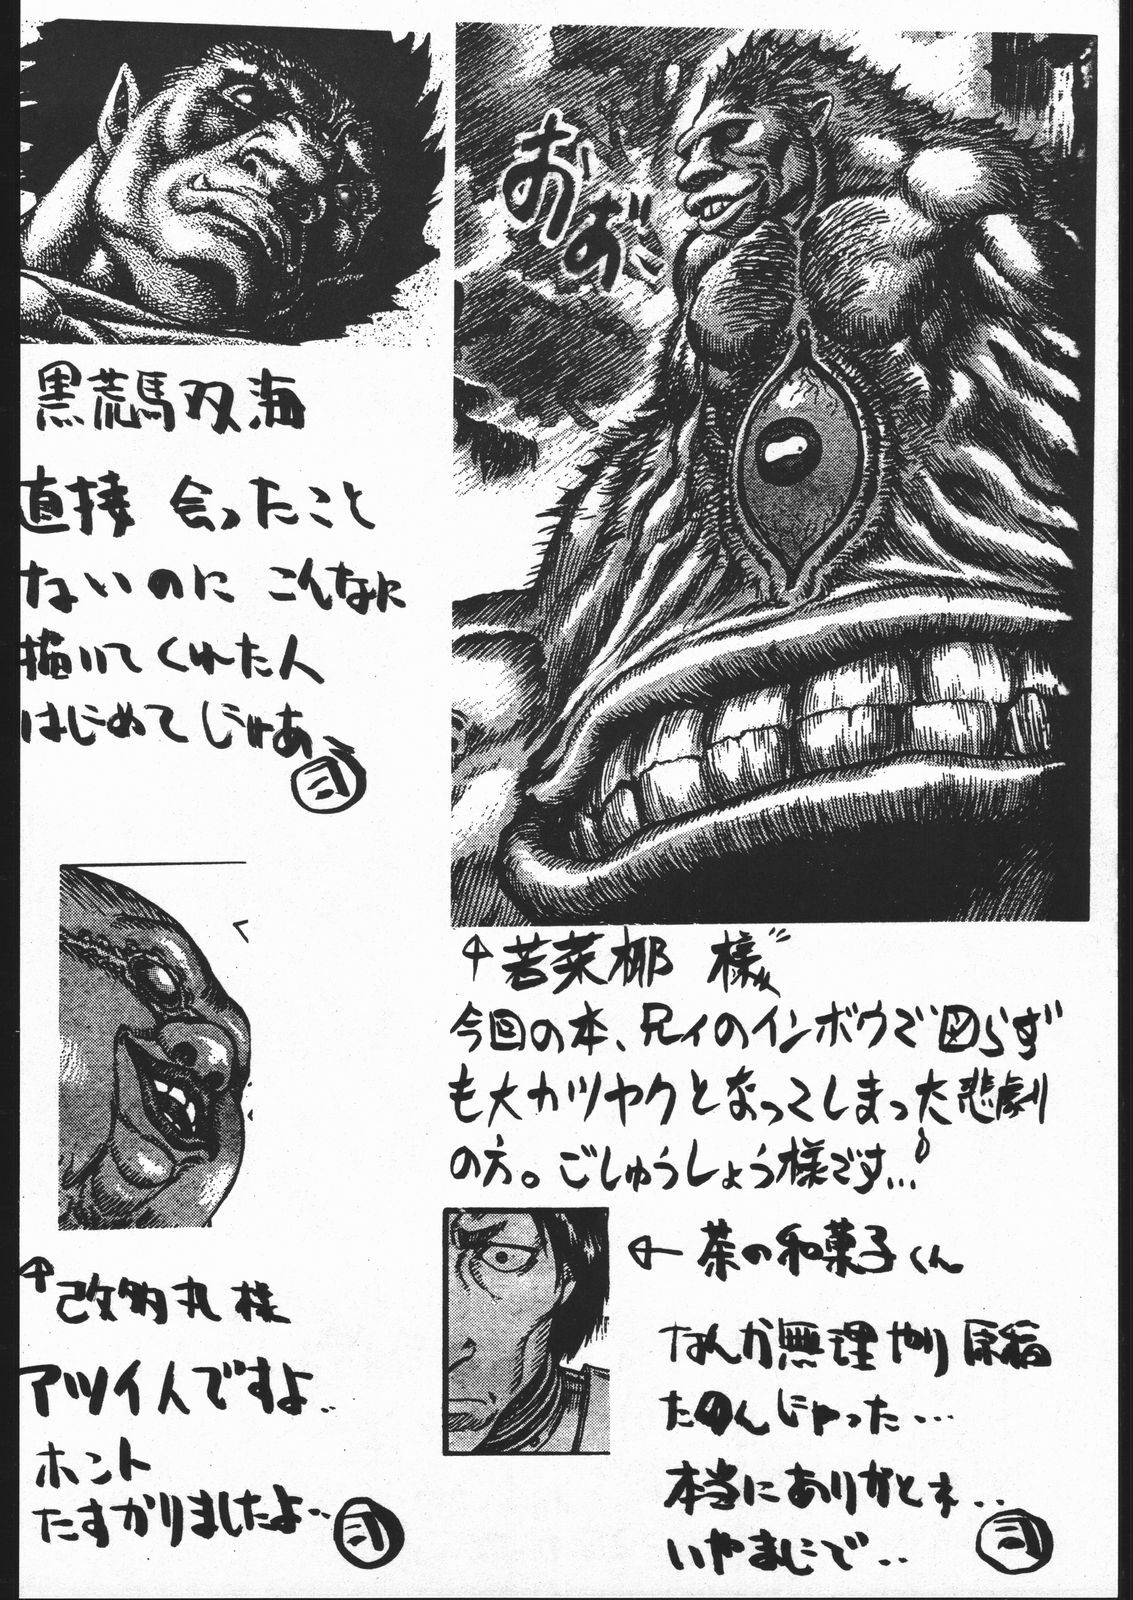 おおお…
黒荒馬双海
直接 会ったこと
ないのに こんなに
描いてくれた人
はじめてじゃあ〜
弐
↑若菜椰 様〃
今回の本、兄ィのインボウで図らず
も大カツヤクとなってしまった悲劇
の方。ごしゅうしょう様です…
↑改釣丸様
アツイ人ですよ..
ホント
たすかりましたよ..
弐
←茶の和菓子くん
なんか無理やり原稿
たのんじゃった…
本当にありがとネ..
いやまじで..
弐